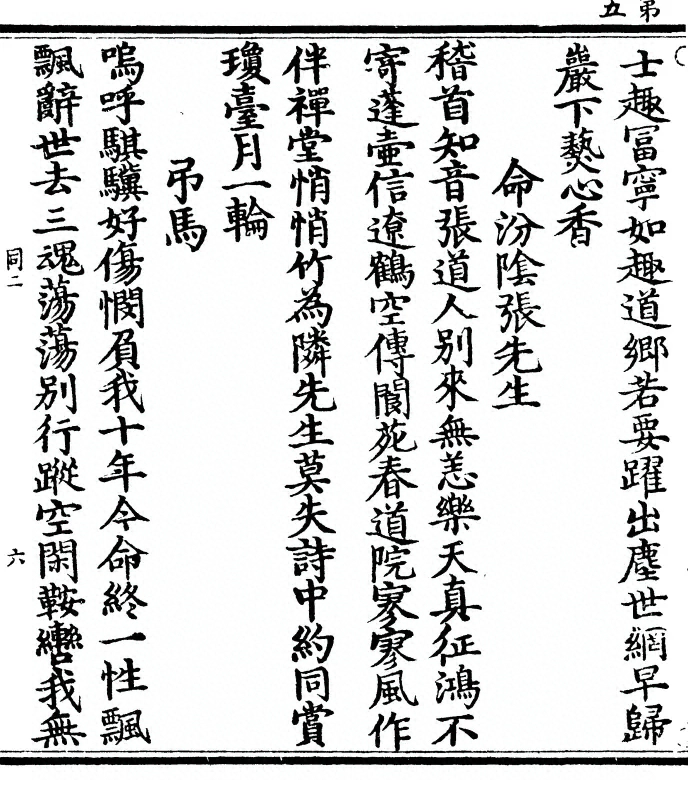 弟五
士趣冨寧如趣道鄉若要躍出塵世網早歸
巖下爇心香
命汾陰張先生
稽首知音張道人別來無恙樂天真征鴻不
寄蓬壷信遼鶴空傳閬苑春道院寥寥風作
伴禪堂悄悄竹為隣先生莫失詩中約同賞
瓊臺月一輪
弔馬
嗚呼騏驥好傷憫負我十年今命終一性飄
飄辭世去三魂蕩蕩別行蹤空閑鞍轡我無
同二
六